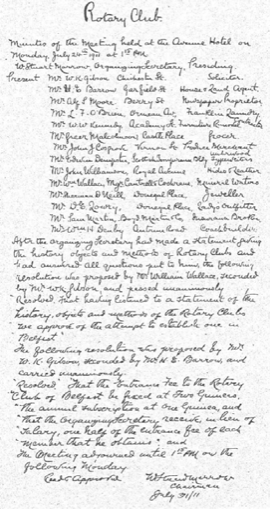 Rotary Club.
Minutes of the Meeting held at the Avenue Hotel on
Monday, July 24th 1911 at 1 P.M.
W. Stuart Morrow, Organizing Secretary, Presiding.
Present Mr W. K. Gibson Chichester St. Solicitor.
Mr H. E. Barron Garfield St. House & Land Agent.
Mr Alf S. Moore Berry St Newspaper Proprietor
Mr L. F. O'Brien Franklin Laundry
Mr W. W. Kennedy Academy St.
Mr Greer Malcolmson Castle Place Grocer
Mr John J. Vernon Produce Merchant
Typewriters
Mr John Williamson Royal Avenue
Mr Wm Wallace, Cantrell & Cochrane, Mineral Waters
Donegall Place Jeweller
Donegall Place Outfitter
Mr Sam Martin Insurance Broker
Coachbuilder
After the Organizing Secretary had made a statement giving
the history, objects and methods of Rotary Clubs and
had answered all questions put to him the following
Resolution was proposed by Mr William Wallace, seconded
by Mr W. K. Gibson, and passed unanimously
"Resolved, That having listened to a statement of the
history, objects and methods of the Rotary Clubs
we approve of the attempt to establish one in
Belfast"
The following resolution was proposed by Mr
W. K. Gibson, seconded by Mr H. E. Barron, and
carried unanimously.
"Resolved" That the Entrance Fee to the Rotary
Club of Belfast be fixed at Two Guineas,
"The annual Subscription at One Guinea, and
"That the Organizing Secretary receive, in lieu of
Salary, one half of the entrance fee of each
"Member that he obtains": and
The Meeting adjourned until 1 P.M. on the
following Monday.
Read & approved W. Stuart Morrow
Chairman
July 31/11